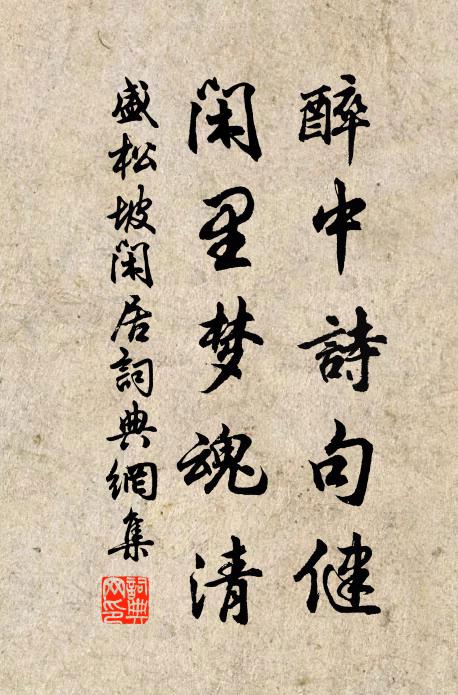 醉中詩句健
閑里梦魂清
盛松坡閑居詞典網集
詞典網印